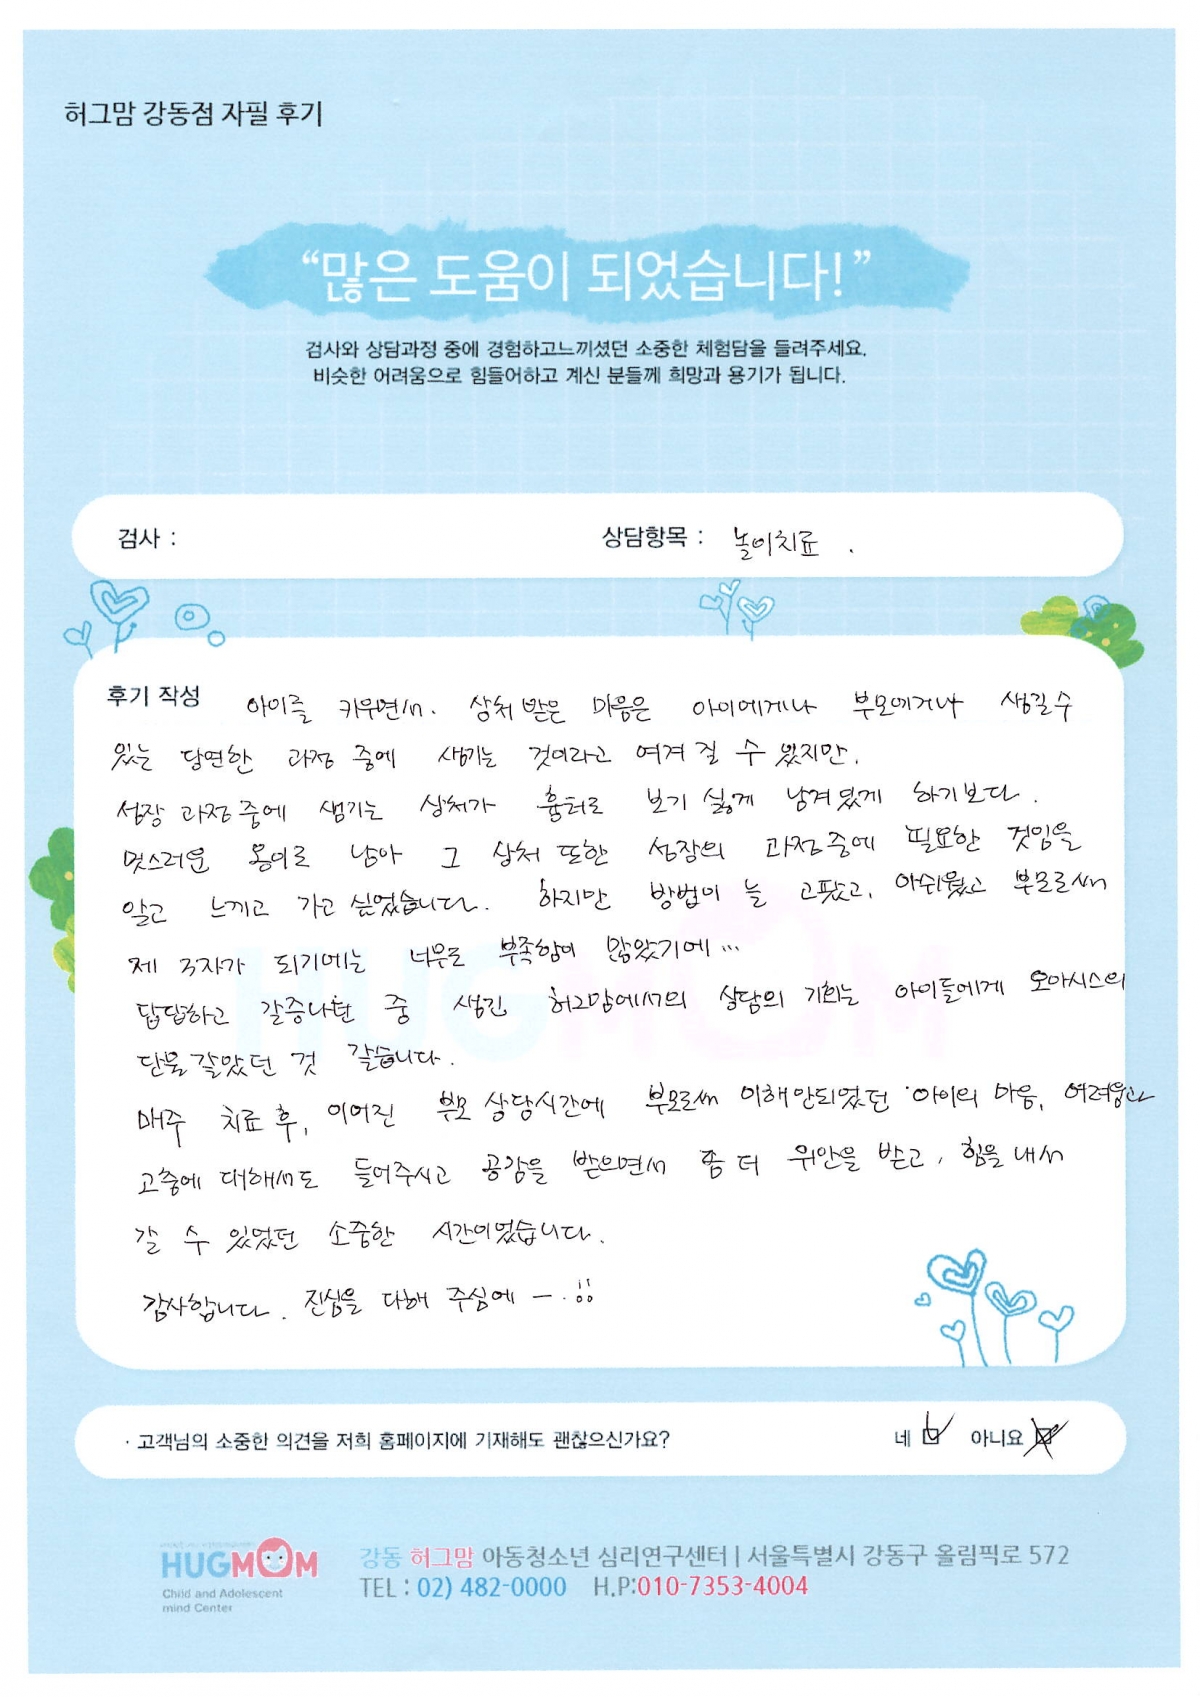 허그맘 강동점 자필 후기
“많은 도움이 되었습니다!”
검사와 상담과정 중에 경험하고느끼셨던 소중한 체험담을 들려주세요.
비슷한 어려움으로 힘들어하고 계신 분들께 희망과 용기가 됩니다.
검사 : 상담항목 : 놀이치료 .
후기 작성 아이를 키우면서. 상처 받은 마음은 아이에게나 부모에게나 생길수
있는 당연한 과정 중에 생기는 것이라고 여겨 질 수 있지만,
성장 과정 중에 생기는 상처가 흉터로 보기 싫게 남겨있게 하기보다.
멋스러운 옹이로 남아 그 상처 또한 성장의 과정중에 필요한 것임을
알고 느끼고 가고 싶었습니다. 하지만 방법이 늘 고팠고, 아쉬웠고 부모로써
제 3자가 되기에는 너무도 부족함이 많았기에...
답답하고 갈증나던 중 생긴 허그맘에서의 상담의 기회는 아이들에게 오아시스의
단물 같았던 것 같습니다.
매주 치료 후, 이어진 부모 상담시간에 부모로써 이해안되었던 아이의 마음, 어려움과
고충에 대해서도 들어주시고 공감을 받으면서 좀 더 위안을 받고, 힘을 내서
갈 수 있었던 소중한 시간이었습니다.
감사합니다. 진심을 다해 주심에 - . !!
· 고객님의 소중한 의견을 저희 홈페이지에 기재해도 괜찮으신가요? 네 아니요
HUGMOM
Child and Adolescent
mind Center
강동 허그맘 아동청소년 심리연구센터 | 서울특별시 강동구 올림픽로 572
TEL : 02) 482-0000 H.P:010-7353-4004